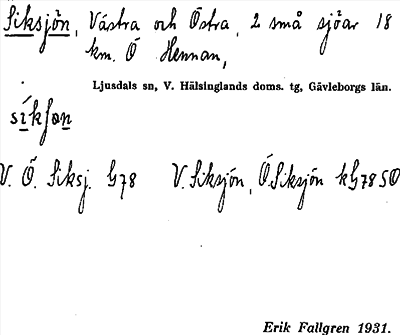 Siksjön, Västra och Östra, 2 små sjöar 18
km. Ö Hennan,
Ljusdals sn, V. Hälsinglands doms. tg, Gävleborgs län.
V. Ö. Siksj. G78 V. Siksjön, Ö. Siksjön kG78SO
Erik Fallgren 1931.